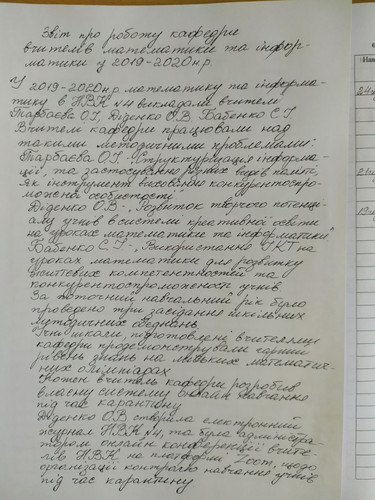 Звіт про роботу кафедри
вчителів математики та інфор-
матики у 2019-2020н.р
У 2019-2020н.р. математику та інформа-
тику в НВК №4 викладали вчителі
Тарбаєва О.І, Діденко О.В. Бабенко С.Г.
Вчителі кафедри працювали над
такими методичними проблемами:
Тарбаєва О.І - "Структуризація інформа-
ції, та застосування різних видів пам'яті,
як інструмент виховання конкурентоспро-
можної особистості
Діденко О.В - "Розвиток творчого потенці-
алу учнів в системі креативної освіти
на уроках математики та інформатики"
Бабенко С.Г-, "Використання ІКТ на
уроках математики для розвитку
життєвих компетентностей та
конкурентоспроможності учнів
За поточний навчальний рік було
проведено три засідання шкільних
методичних об'єднань.
Учні школи підготовлені вчителями
кафедри продемонстрували гарний
рівень знань на міських математич-
них олімпіадах.
Кожен вчитель кафедри розробив
власну систему онлайн навчання
під час карантину
Діденко О.В створила електронний
журнал НВК №4, та була адміністра-
тором онлайн конференції вчите-
лів НВК на платформі Zoom, щодо
організації контролю навчання учнів
під час карантину